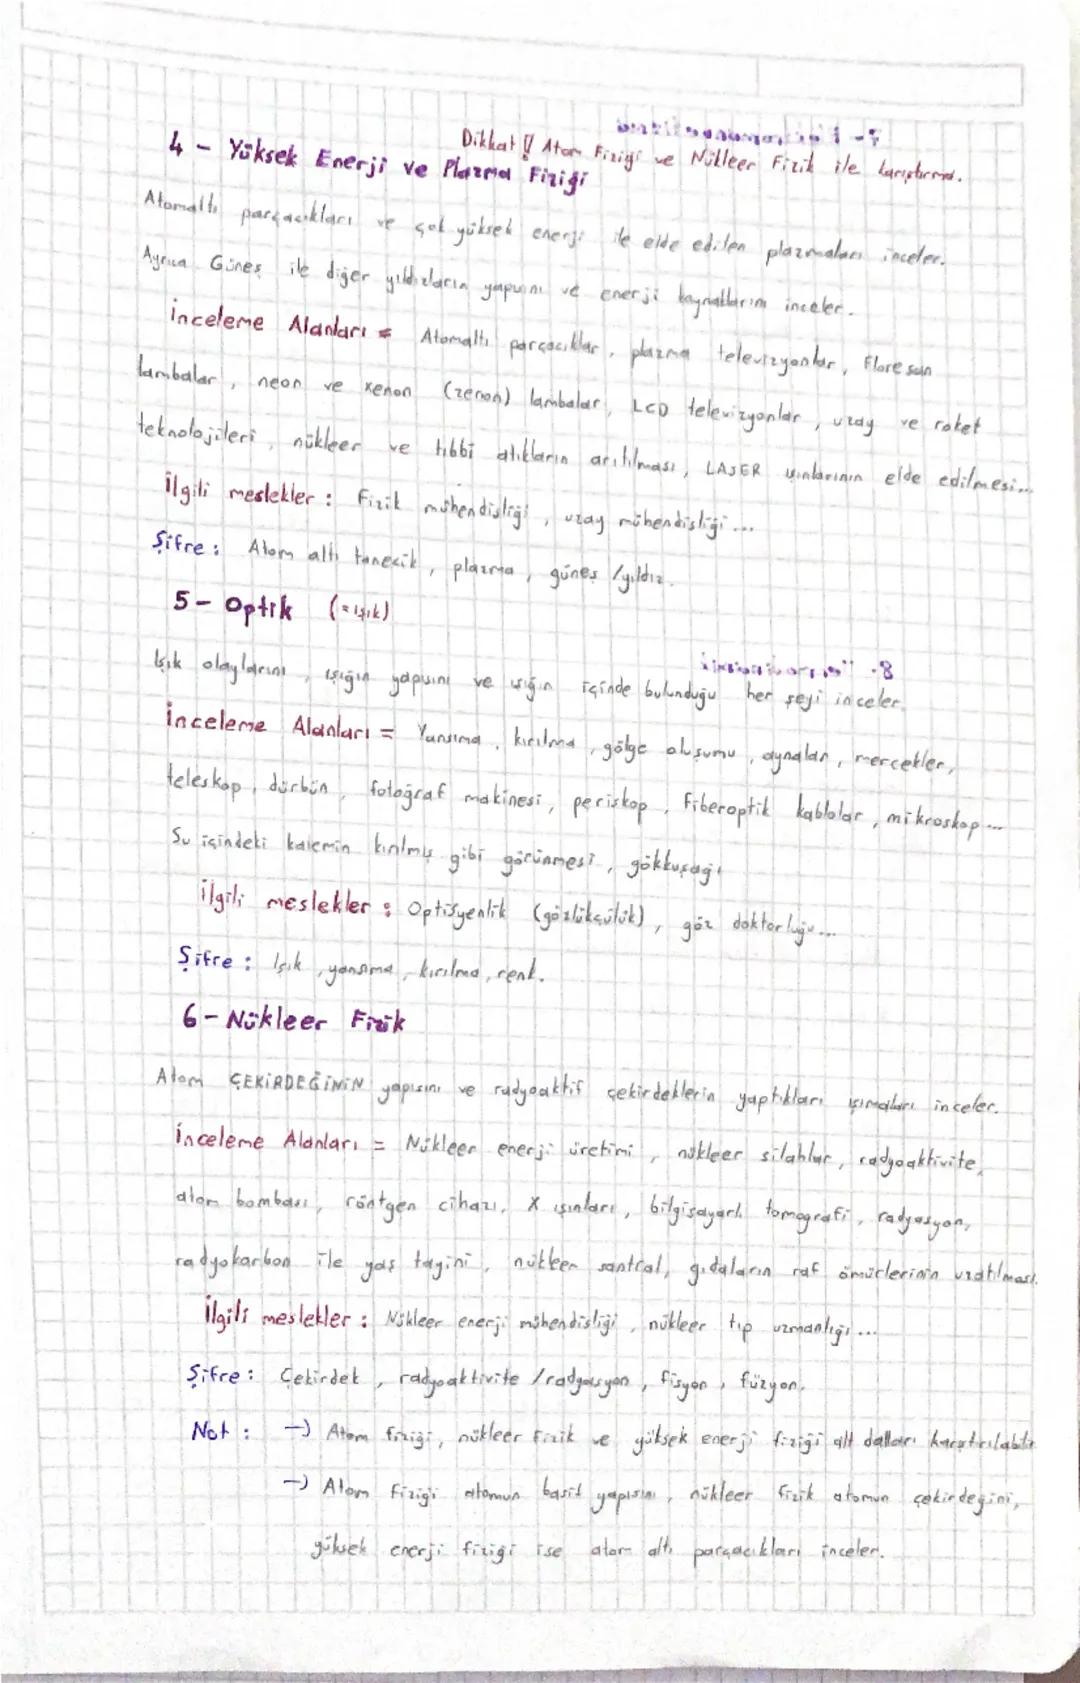 Dikkat !! Atom Fiziği ve Nükleer Fizik ile karıştırma.
4 - Yüksek Enerji ve Plazma Fiziği
Atomaltı parçacıkları ve çok yüksek enerji ile elde edilen plazmaları inceler.
Ayrıca Güneş ile diğer yıldızların yapısını ve enerji kaynaklarını inceler.
İnceleme Alanları = Atomaltı parçacıklar, plazma televizyonlar, Floresan
lambalar, neon ve xenon (zenon) lambalar, LCD televizyonlar, uzay ve roket
teknolojileri, nükleer ve tıbbi atıkların arıtılması, LASER ışınlarının elde edilmesi...
İlgili meslekler : Fizik mühendisliği, uzay mühendisliği...
Şifre : Atom altı tanecik, plazma, güneş / yıldız.
5 - Optik (= ışık)
Işık olaylarını, ışığın yapısını ve ışığın içinde bulunduğu her şeyi inceler.
İnceleme Alanları = Yansıma, kırılma, gölge oluşumu, aynalar, mercekler,
teleskop, dürbün, fotoğraf makinesi, periskop, fiberoptik kablolar, mikroskop...
Su içindeki kalemin kırılmış gibi görünmesi, gökkuşağı
İlgili meslekler : Optisyenlik (gözlükçülük), göz doktorluğu...
Şifre : Işık, yansıma, kırılma, renk.
6 - Nükleer Fizik
Atom ÇEKİRDEĞİNİN yapısını ve radyoaktif çekirdeklerin yaptıkları ışımaları inceler.
İnceleme Alanları = Nükleer enerji üretimi, nükleer silahlar, radyoaktivite,
atom bombası, röntgen cihazı, X ışınları, bilgisayarlı tomografi, radyasyon,
radyokarbon ile yaş tayini, nükleer santral, gıdaların raf ömürlerinin uzatılması.
İlgili meslekler : Nükleer enerji mühendisliği, nükleer tıp uzmanlığı...
Şifre : Çekirdek, radyoaktivite / radyasyon, fisyon, füzyon.
Not : → Atom fiziği, nükleer fizik ve yüksek enerji fiziği alt dalları karıştırılabilir
→ Atom fiziği atomun basit yapısını, nükleer fizik atomun çekirdeğini,
yüksek enerji fiziği ise atom altı parçacıkları inceler.